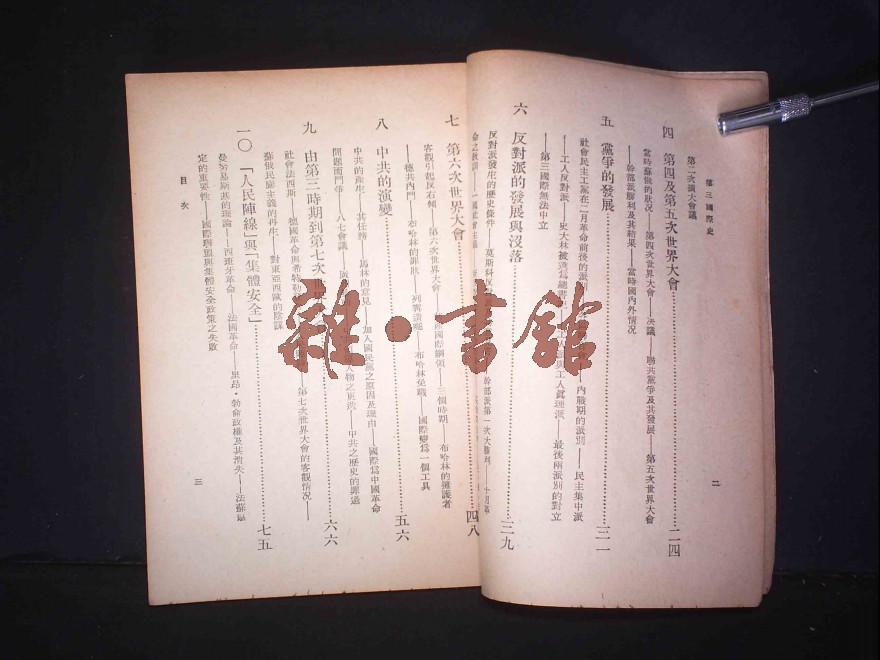 第三國際史
二
第二次擴大會議
四　第四及第五次世界大會……二四
當時蘇俄的狀況——第四次世界大會——決議——聯共黨爭及其發展——第五次世界大會
——幹部派勝利及其結果——當時國內外情況
五　黨爭的發展……三一
社會民主工黨在二月革命前後的派別 內戰期的派別——民主集中派
——工人反對派——史大林被選爲總書 與工人眞理派——最後兩派別的對立
——第三國際無法中立
六　反對派的發展與沒落……三九
反對派發生的歷史條件——莫斯科反 幹部派第一次大勝利——十月革
命之教訓——一國社會主義
七　第六次世界大會……四八
客觀引起反右傾——第六次世界大會 國際綱領——三個時期——布哈林的擁護者
——德共內鬥——布哈林的罪狀——列寧遺囑——布哈林免職——國際變爲一個工具
八　中共的演變……五六
中共的產生——其任務——馬林的意見——加入國民黨之原因及理由——國際爲中國革命
問題而鬥爭——八七會議 人物之更迭——中共之歷史的罪過
九　由第三時期到第七次世界……六六
社會法西斯——德國革命與希特勒 第七次世界大會的客觀情況——
蘇俄民族主義的再生——對東亞西歐的陰謀
一〇　「人民陣線」與「集體安全」……七五
曼努易斯基的理論——西班牙革命——法國革命——里昂·勃侖政權及其消失——法蘇協
定的重要性——國際聯盟與集體安全政策之失敗
目次
三
雜·書館